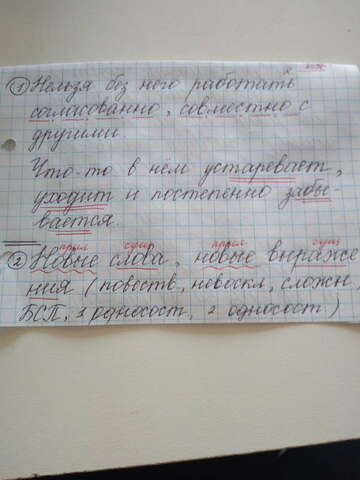 ① Нельзя без него работать
согласованно, совместно с
другими
Что-то в нем устаревает,
уходит и постепенно забы-
вается.
прил сущ прил сущ
② Новые слова, новые выраже
ния (повеств, невоскл, сложн,
БСП, 1 односост, 2 односост)